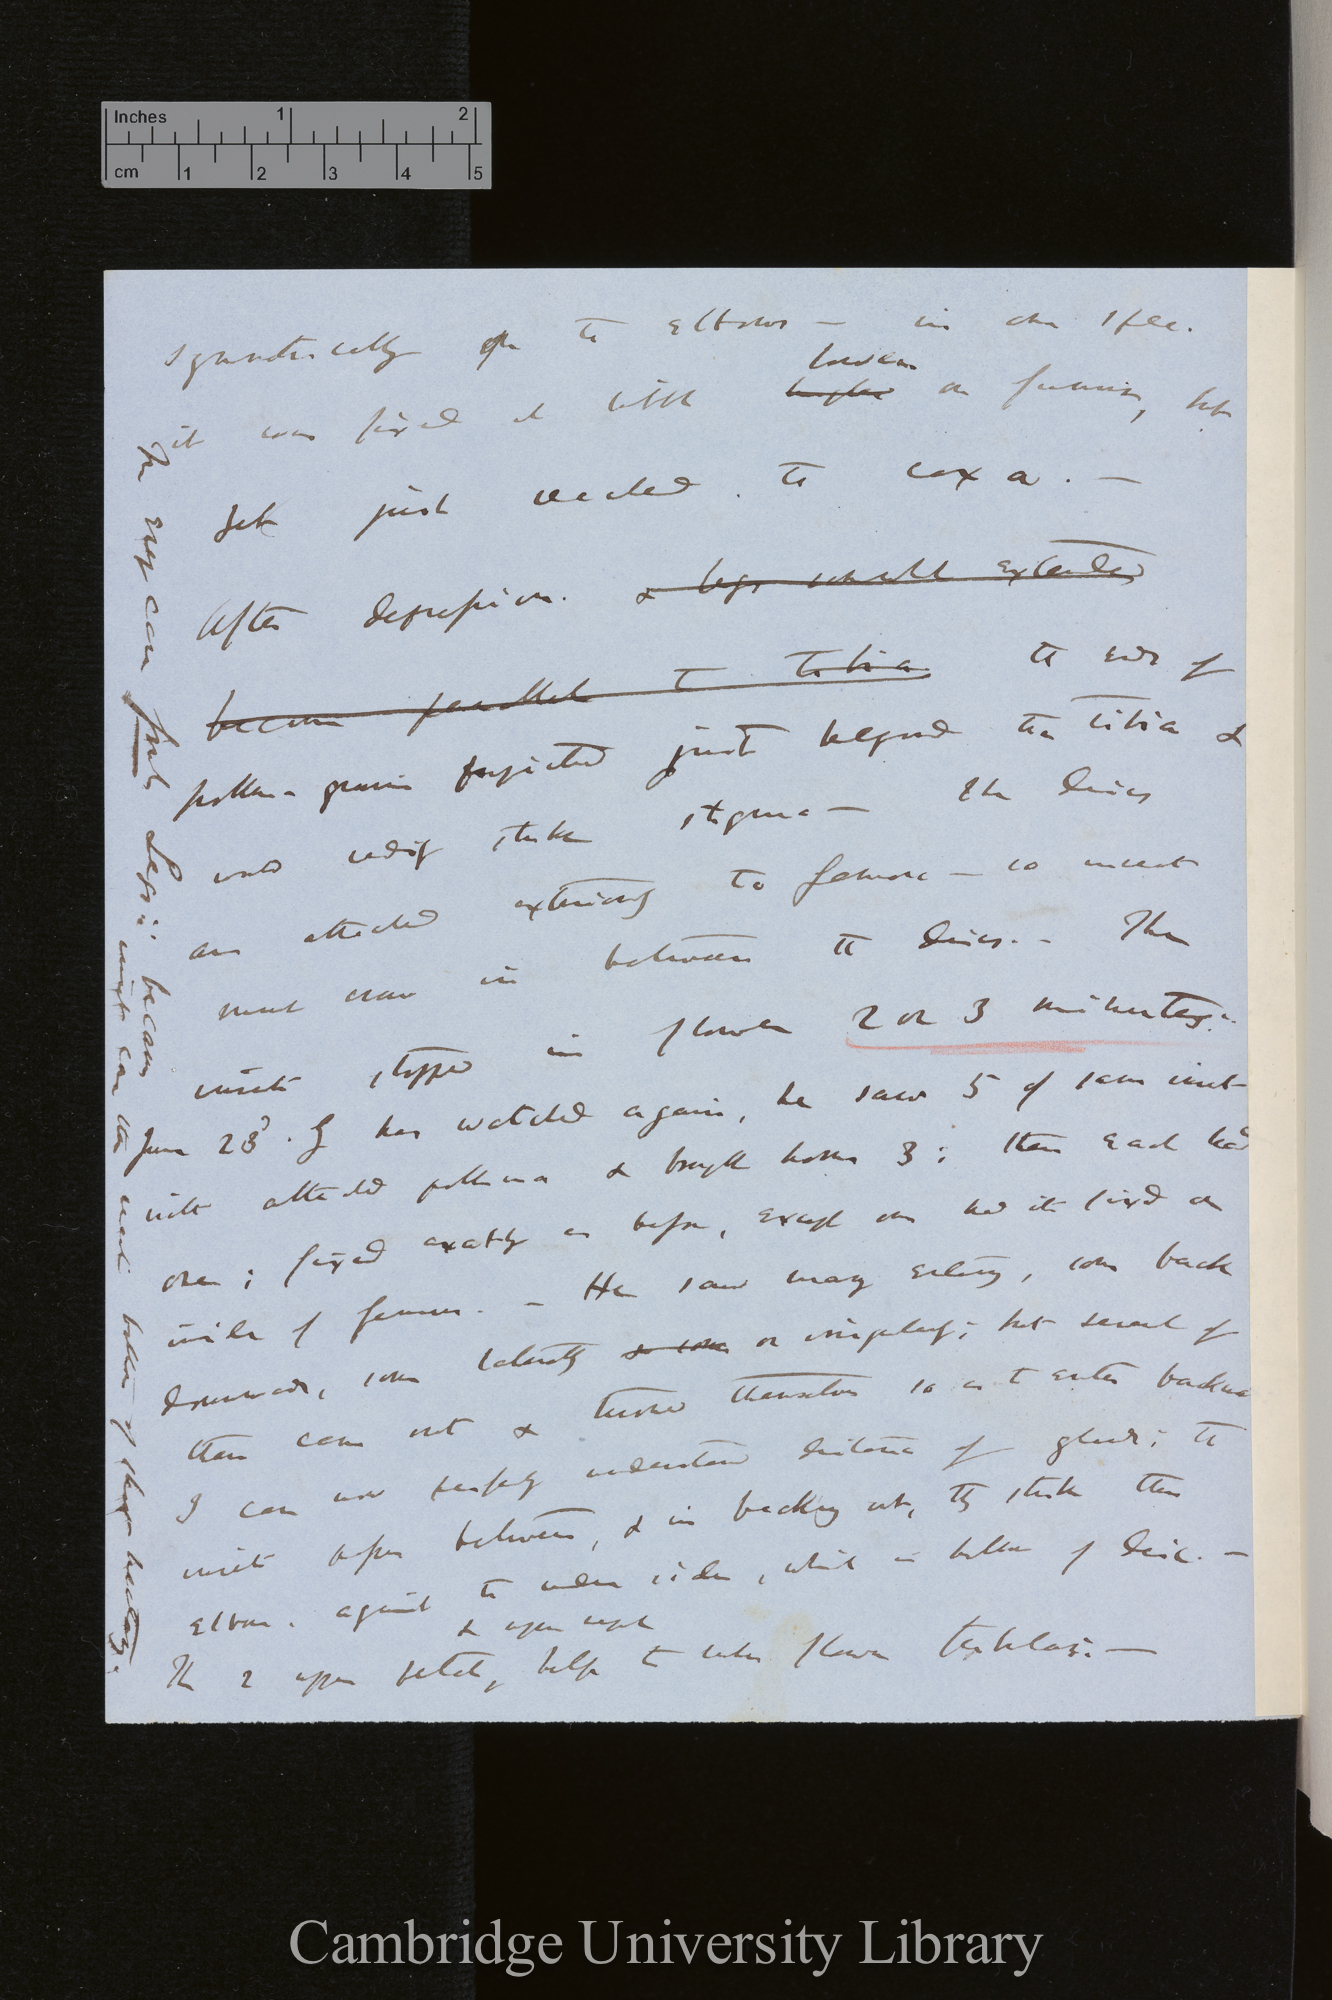 Inches 1 2
cm 1 2 3 4 5
symmetrically on to elbows — in one spec.
lower
it was fixed a little higher on femur, but
yet just reached the coxa. —
After depression. & legs which extended
become parallel to tibia the ends of
pollen-grains projected just beyond the tibia &
would strike stigma — The discs
are attached exteriorly to femora — so insect
must crawl in between the discs. — The
insects stopped in flower 2 or 3 minutes:
June 23d. G has watched again, he saw 5 of same insect
with attached pollinia & brought home 3: these each had
one; fixed exactly as before, except one had it fixed on
inside of femur. — He saw many entering, some back
downwards, some laterally & some or irregularly; but several of
them came out & turned themselves so as to enter backward
I can now understand distance of glands; the
insects between, & in backing out, they strike their
elbow against the under sides, which is bottom of disc. —
& upper sepal
The 2 upper petals, help to make flower tubular: —
The front Legs: because
might can the bottom of nectary.
Cambridge University Library